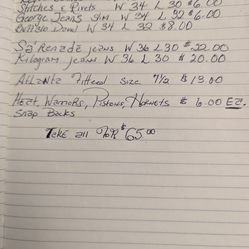 Stitches & Rivets W 34 L 30 $6.00
George Jeans Slim W 34 L 32 $6.00
Buffalo David W 34 L 32 $8.00
Sa Renade jeans W 36 L 30 $22.00
Kilogram jeans W 36 L 30 $20.00
Atlanta Fitted Size 7 1/8 $13.00
Heat, Warriors, Pistons, Hornets $6.00 EA.
Snap Backs
Take all for $65.00